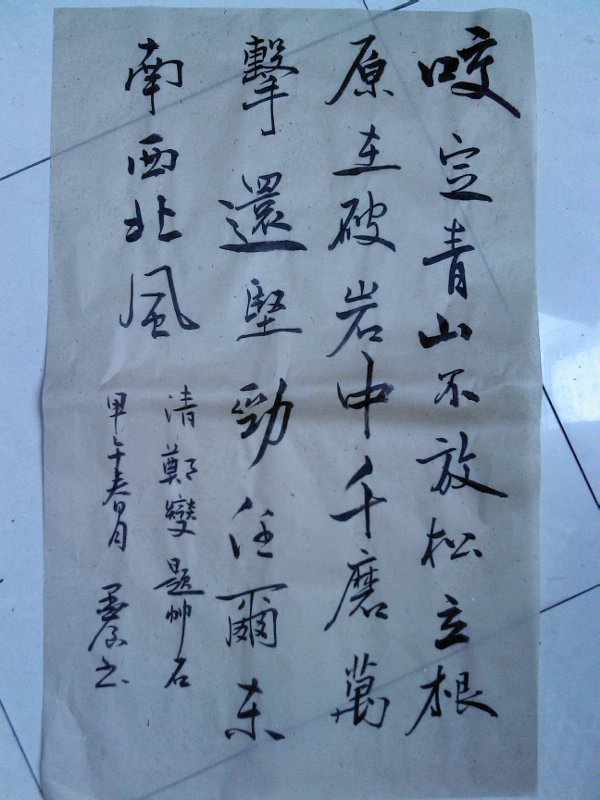 咬定青山不放松立根
原在破岩中千磨萬
擊還堅勁任爾東
南西北風
清鄭燮題竹石
甲午春月书